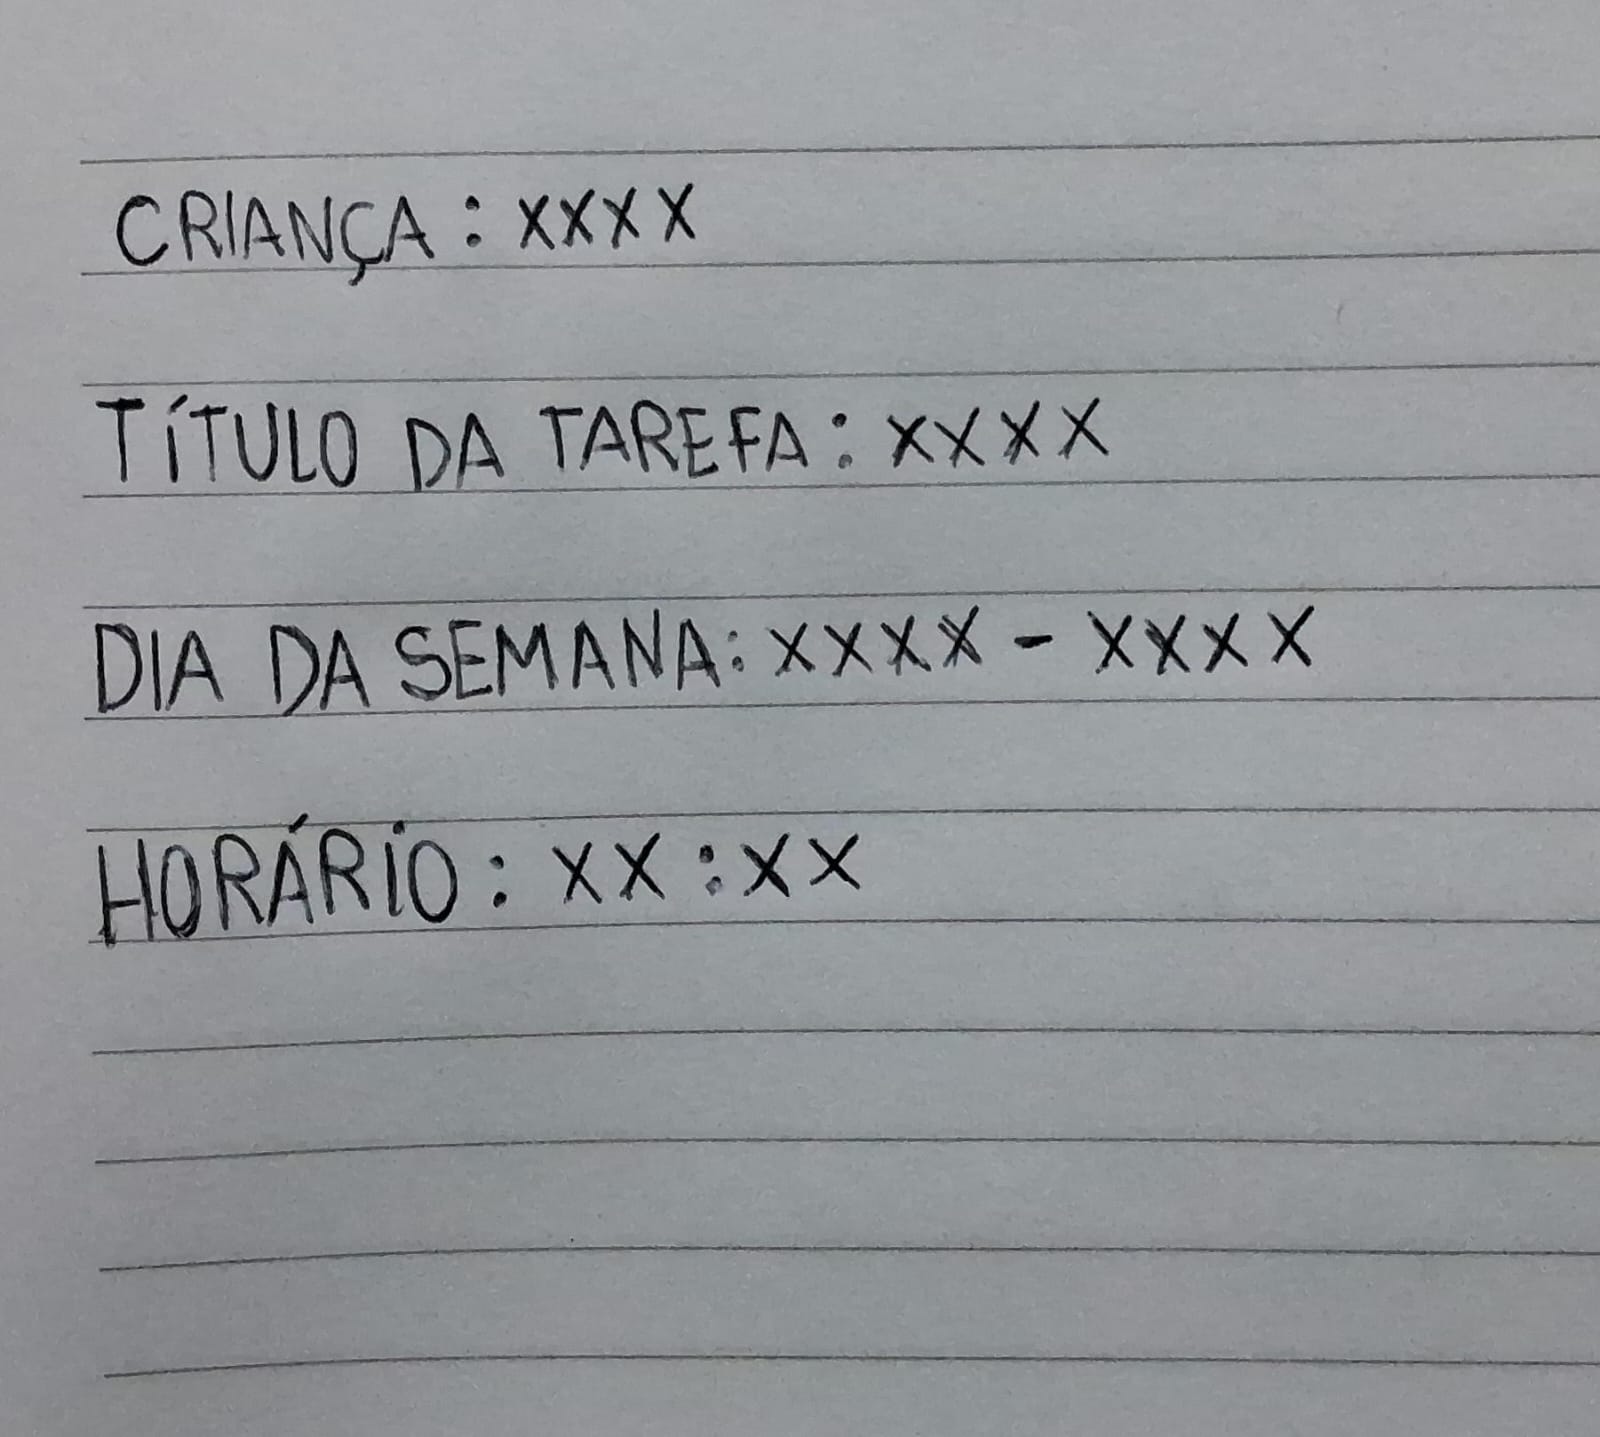 CRIANÇA: XXXX
TÍTULO DA TAREFA: XXXX
DIA DA SEMANA: XXXX - XXXX
HORÁRIO: XX:XX